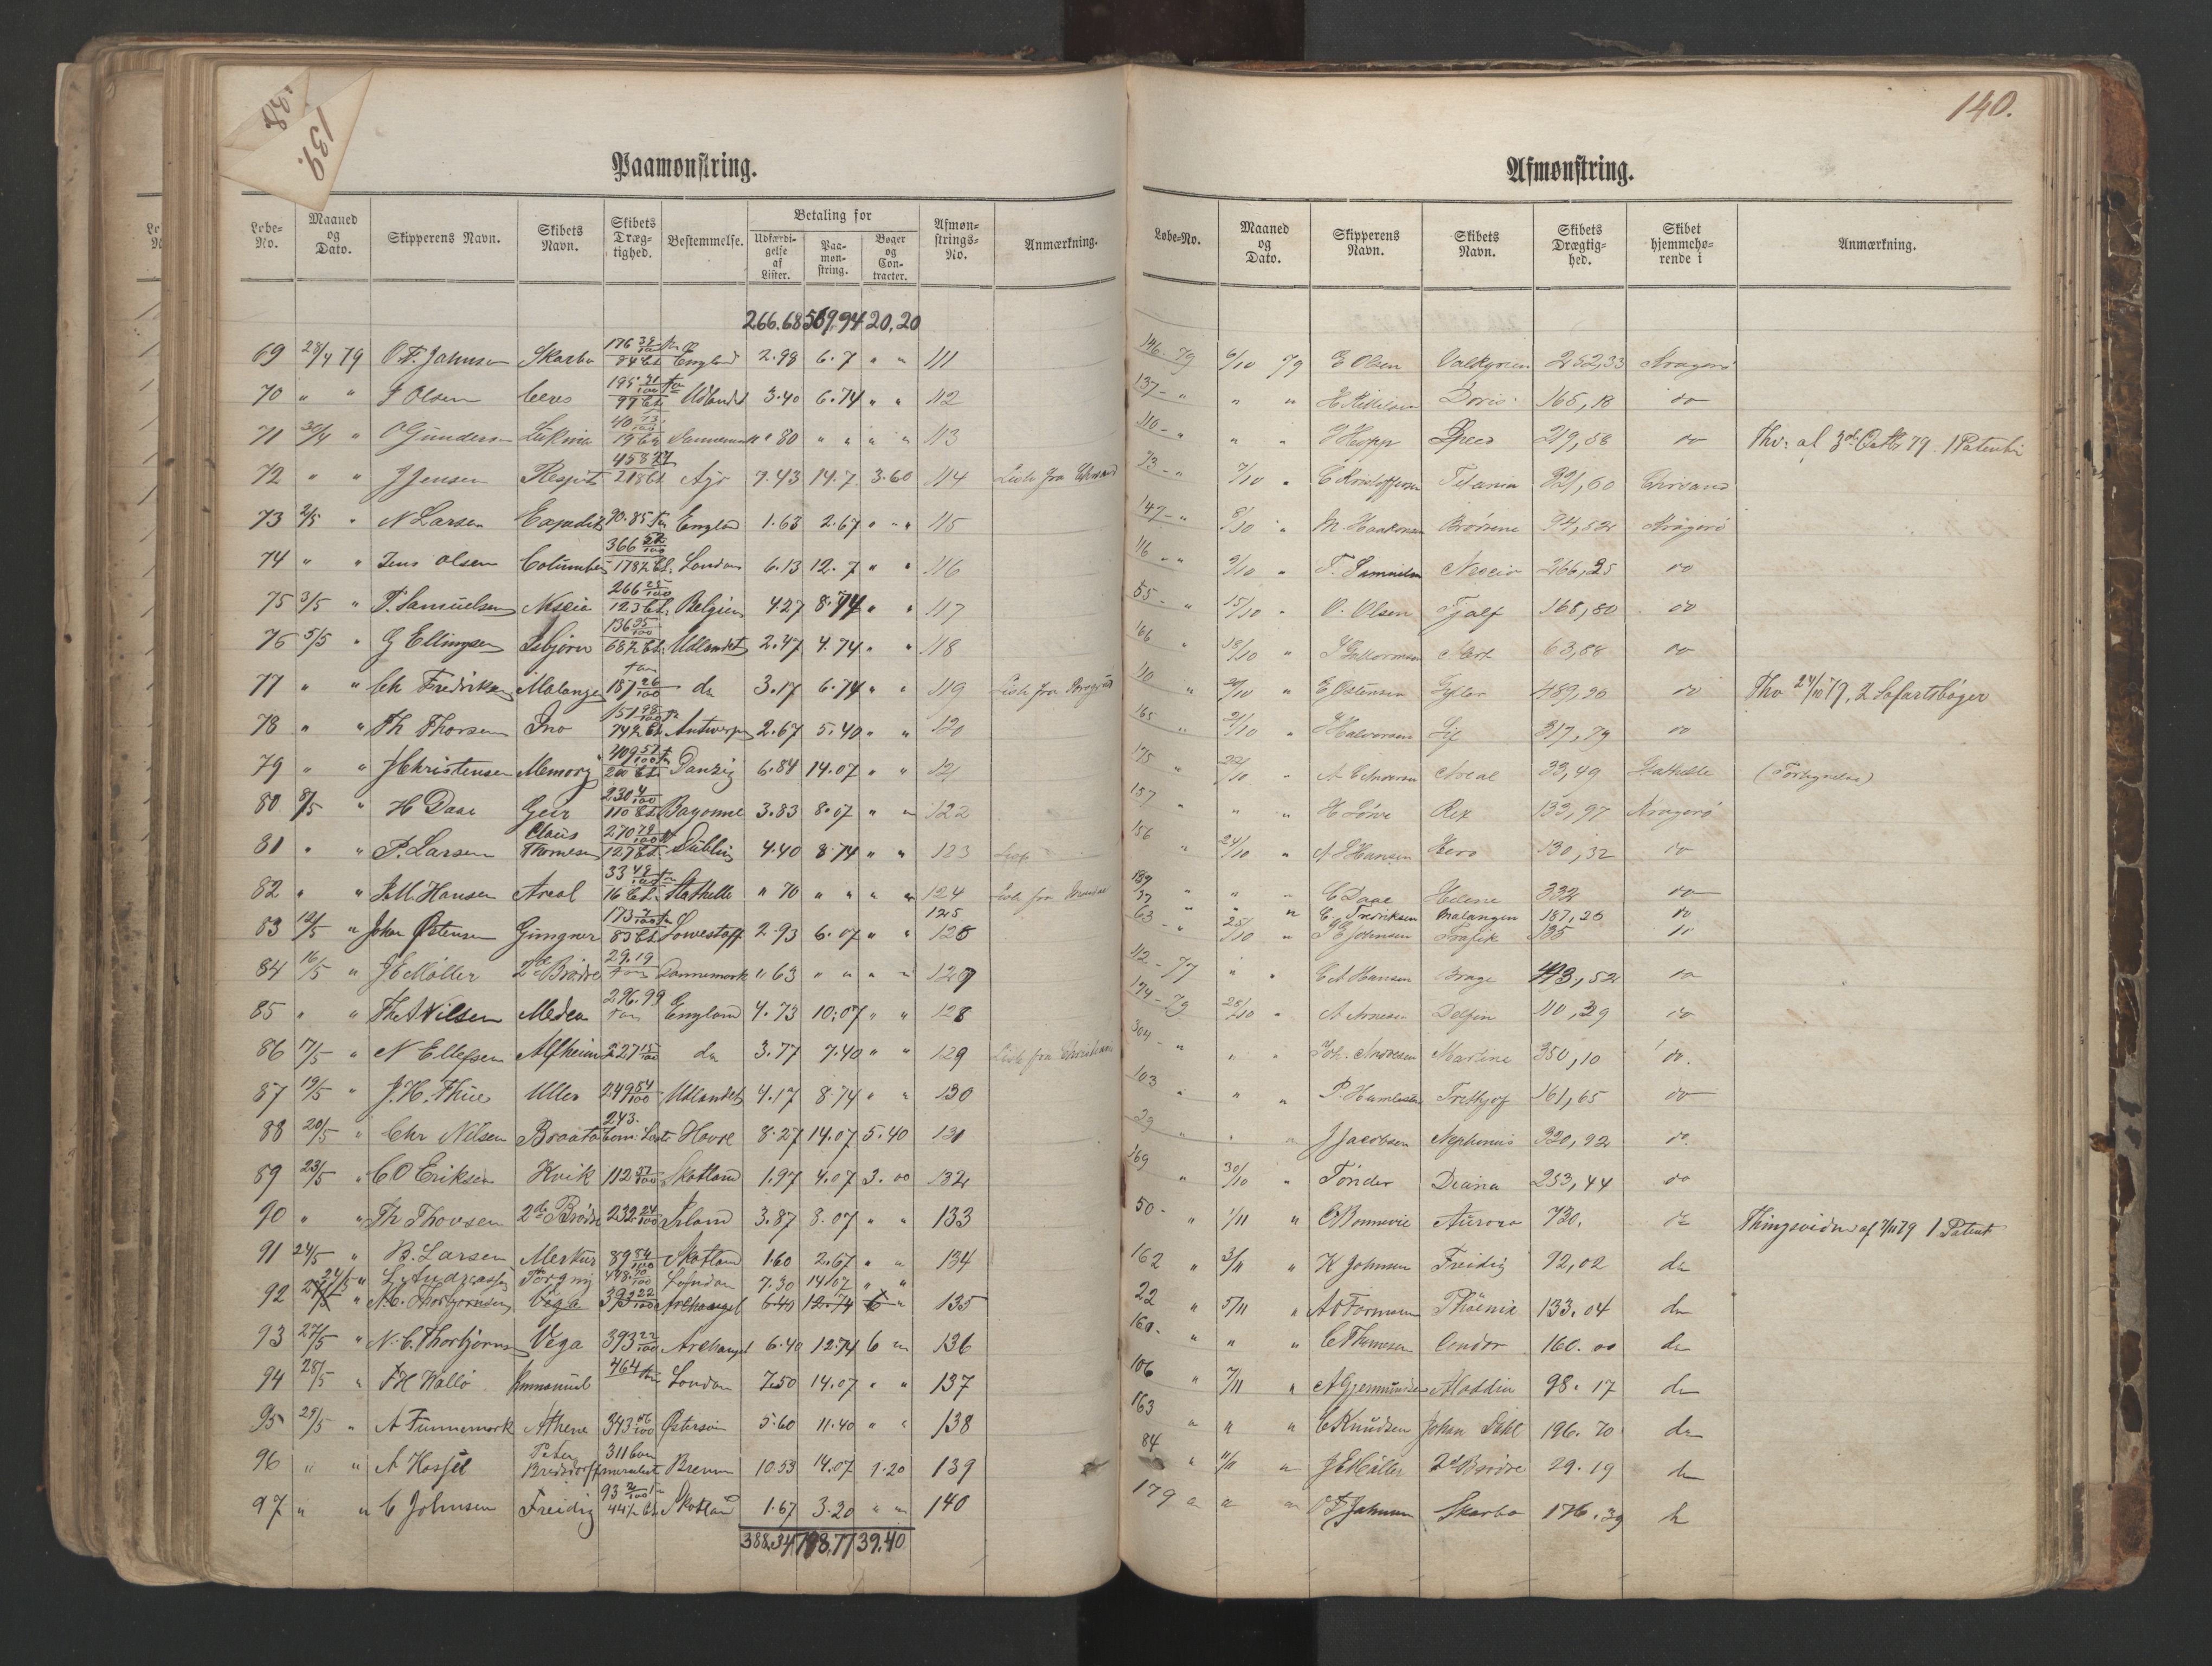 139.
Paamonstring.
Løbe-No. Maaned og Dato. Skipperens Navn. Skibets Navn. Skibets Dræg-tighed. Bestemmelse. Betaling for Udfærdi-gelse af Lister. Paa-mon-string. Bøger og Con-tracter. Afmøn-strings-No. Anmærkning.
266.68 569,94 20,20
69 28/4 79 O.F. Jahnsen Skarbo 176 39/100 84 Cl. England 2.98 6.7 " " 111
70 " " J Olsen Ceres 97 Cl. Udlandet 3.40 6.74 " " 112
71 30/4 " O Gunders 19 Cl " 80 " " " " 113
72 " " J Jensen Respit 458 77 218 Cl Ayr 7.43 14.7 3.60 114 Liste fra
73 2/5 " N Larsen Expedit 90.85 England 1.63 2.67 " " 115
74 " " Jens Olsen Columbus 366 London 6.13 12.7 " " 116
75 3/5 " T. Samuelsen Nescio 266 25/100 123 Cl. Belgien 4.27 8.74 " " 117
76 5/5 " G Ellingsen Isbjørn 136 95/100 Udlandet 2.47 4.74 " " 118
77 " " Ch Fredriksen Malangen 187 26/100 do 3.17 6.74 " " 119 Liste fra
78 " " Th Thorsen Ino 151 98/100 Antwerpen 2.67 5.40 " " 120
79 " " J Christensen Memory 409 200 Cl Danzig 6.84 14.07 " " 121
80 8/5 " H Daae Geir 230 4/100 110 Cl. Bayonne 3.83 8.07 " " 122
81 " " P. Larsen Claus Thomesen 270 127 Cl. Dublin 4.40 8.74 " " 123
82 " " Hansen Areal 33 16 Cl. Stathelle " 70 " " " " 124 Liste fra
83 12/5 " Johan Østensen Gungner 173 83 Cl. Lowestoff 2.93 6.07 " " 125 126
84 16/5 " J E Møller 2de Brødre 29.19 Tons Dannemark " 63 " " " " 127
85 " " Th A Nilsen Medea 296.99 Tons England 4.73 10.07 " " 128
86 17/5 " N Ellefsen Alfheim 227 15/100 do 3.77 7.40 " " 129 Liste fra
87 19/5 " J. H. Thue Uller 249 54/100 Udlandet 4.17 8.74 " " 130
88 20/5 " Chr Nilsen Braata 243. Com. Læster Havre 8.27 14.07 5.40 131
89 23/5 " C O Eriksen Kvik 112 Skotland 1.97 4.07 3.00 132
90 " " Th Thovsen 2de Brødre 232 24/100 Irland 3.87 8.07 " " 133
91 24/5 " B. Larsen Merkur 89 84/100 Skotland 1.60 2.67 " " 134
24/5 " L. Andreassen Torgny 448 London 7.30 14.07 " "
92 " N.C. Thorbjørnsen Vega 393 22/100 Archangel 6.40 12.74 6 " 135
93 27/5 " N.C. Thorbjørnsen Vega 393 22/100 Archangel 6.40 12.74 6 " 136
94 28/5 " F H Wallø Immanuel 464 Tons London 7.50 14.07 " " 137
95 29/5 " A Finnemark Athene 343 06/100 Østersøen 5.60 11.40 " " 138
96 " " A Hassel Peter Bredsdorff 311 Commerselæst Bremen 10.53 14.07 1.20 139
97 " " C Johnsen Freidig 93 2/100 Skotland 1.67 3.20 " " 140
388.34 798,77 39.40
140.
Afmonstring.
Løbe-No. Maaned og Dato. Skipperens Navn. Skibets Navn. Skibets Drægtig-hed. Skibet hjemmehø-rende i Anmærkning.
146-79 6/10 79 E Olsen Valkyrien 252,33 Kragerø
137-" " " H Kittilsen Doris 165,18 do
110-" " " J Hopp Speed 219,58 do Thv: af 3de Octbr 79. 1 Patent
73-" 7/10 " C Kristoffersen Titania 321,60 Chrsand
147-" 8/10 " M. Haakonsen Brødrene 94,52 Kragerø
116-" 9/10 " T. Samuelsen Nescio 266,25 do
55-" 15/10 " O. Olsen Fjalf 168,80 do
166 " 18/10 " J Guttormsen 63,88 do
110 " 20/10 " E Østensen Gyller 489,90 do Thv 24/10 79, 2 Søfartsbøger
165 " 21/10 " Halvorsen Sif 317,79 do
175 " 22/10 " A C Andersen Areal 33,49 Stathelle
157 " " " H Løwe Rex 133,97 Kragerø
156 " 24/10 " A Hansen Hero 130,32 do
189 " " " C Daae Helene 332 do
37 " " " C. Fredriksen Malangen 187,26 do
63-" 25/10 " Johnsen Trafik 135 "
112-77 " " C A Hansen Brage 493,52 do
174-79 28/10 " A Arnesen Delfin 110,39 do
304-" " " Joh. Andresen Martine 350,10 do.
103 " " " P. Humlesen Fritthjof 161,65 do
29 " " " J Jacobsen Nephonis 320,92 do.
169 " 30/10 " Tønder Diana 253,44 do
50-" 1/11 " C Bonnevie Aurora 730. do Thingsvidne af 7/11 79 1 Patent
162 " 3/11 " K Johnsen Freidig 92,02 do
22 " 5/11 " A O Formann Phøenix 133.04 do
160-" " " C Thomesen Condor 160.00 do
106 " 7/11 " A Gjermundsen Aladdin 98.17 do
163 " " " C Knudsen Johan Dahl 196.70 do
84 " 11/11 " J E Møller 2de Brødre 29.19 do
179 " " " O F Jahnsen Skarbo 176.39 do